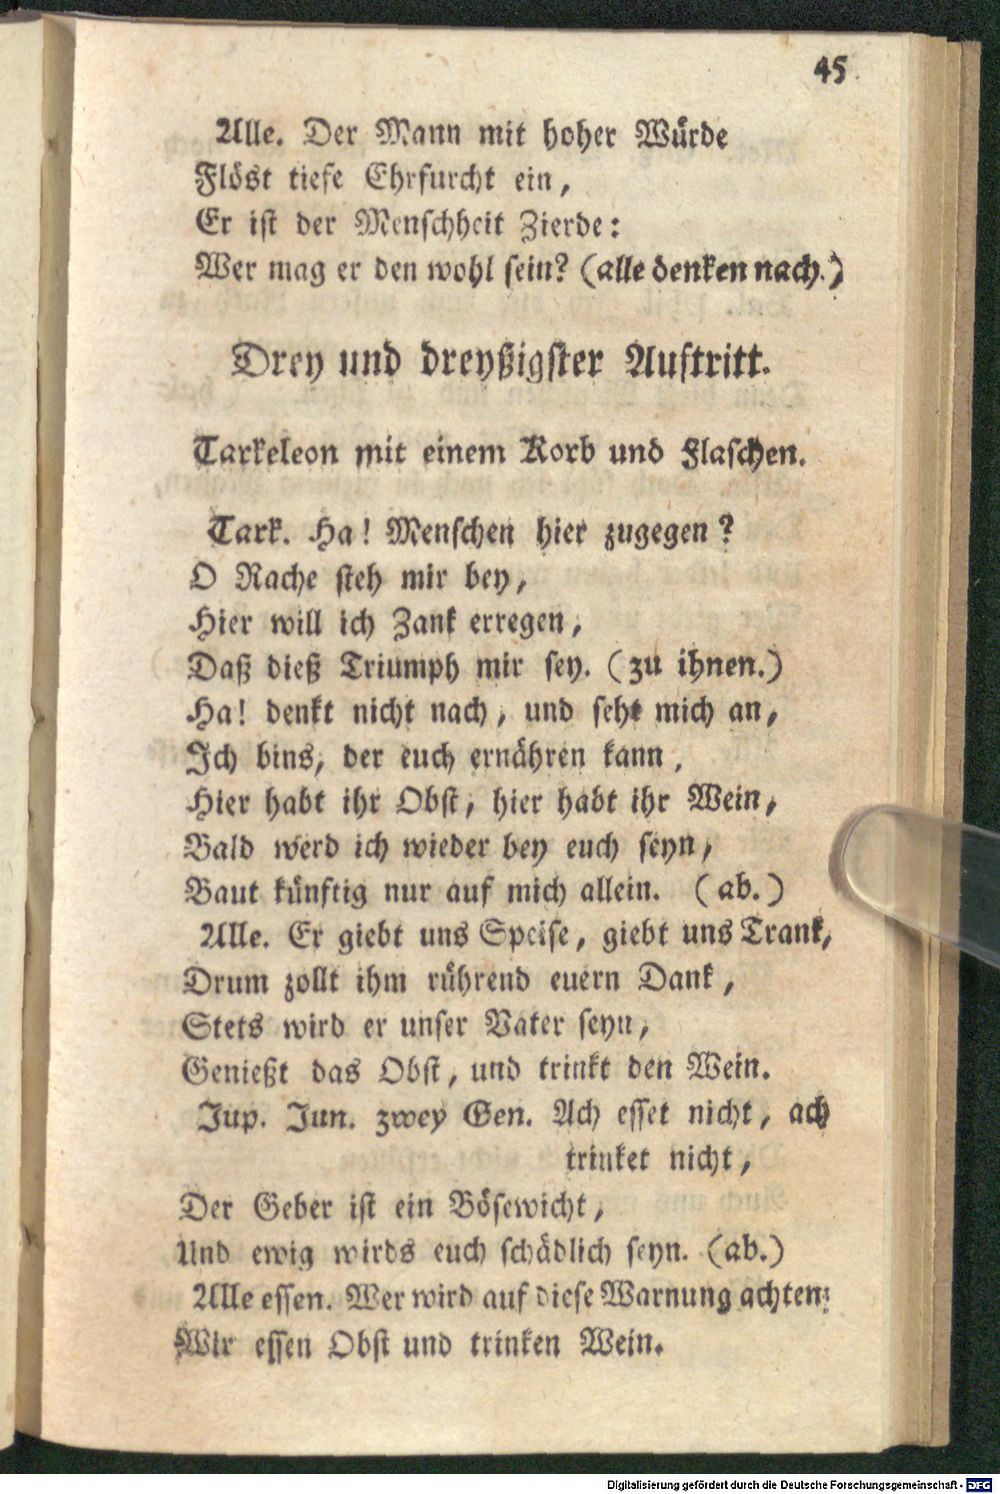 45
Alle. Der Mann mit hoher Würde
Flöst tiefe Ehrfurcht ein,
Er ist der Menschheit Zierde:
Wer mag er den wohl sein? (alle denken nach.)
Drey und dreyßigster Auftritt.
Tarkeleon mit einem Korb und Flaschen.
Tark. Ha! Menschen hier zugegen?
O Rache steh mir bey,
Hier will ich Zank erregen,
Daß dieß Triumph mir sey. (zu ihnen.)
Ha! denkt nicht nach, und seht mich an,
Ich bins, der euch ernähren kann,
Hier habt ihr Obst, hier habt ihr Wein,
Bald werd ich wieder bey euch seyn,
Baut künftig nur auf mich allein. (ab.)
Alle. Er giebt uns Speise, giebt uns Trank,
Drum zollt ihm rührend euern Dank,
Stets wird er unser Vater seyn,
Genießt das Obst, und trinkt den Wein.
Jup. Jun. zwey Gen. Ach esset nicht, ach
trinket nicht,
Der Geber ist ein Bösewicht,
Und ewig wirds euch schädlich seyn. (ab.)
Alle essen. Wer wird auf diese Warnung achten:
Wir essen Obst und trinken Wein.
Digitalisierung gefördert durch die Deutsche Forschungsgemeinschaft - DFG